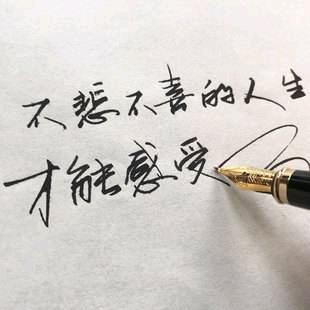 不悲不喜的人生
才能感受